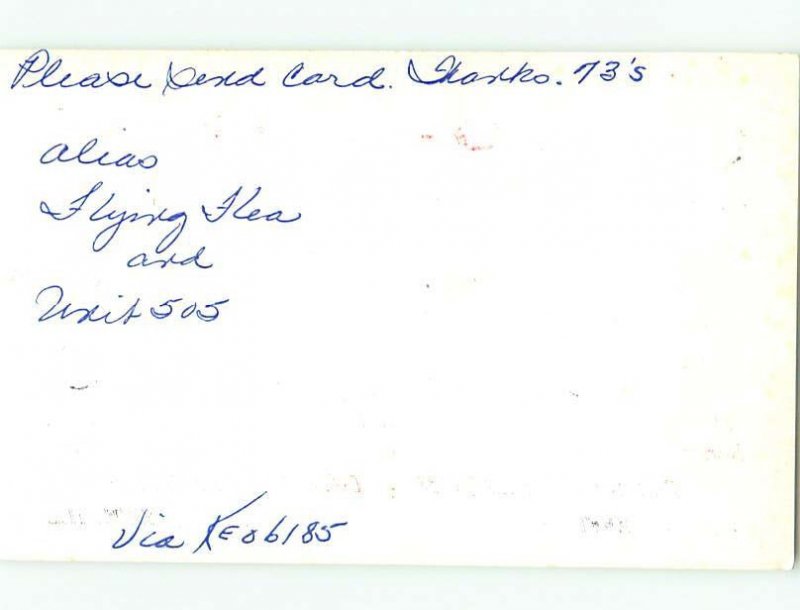 Please Send Card. Thanks. 73's
alias
Flying Flea
and
Unit 505
Via KEO6185